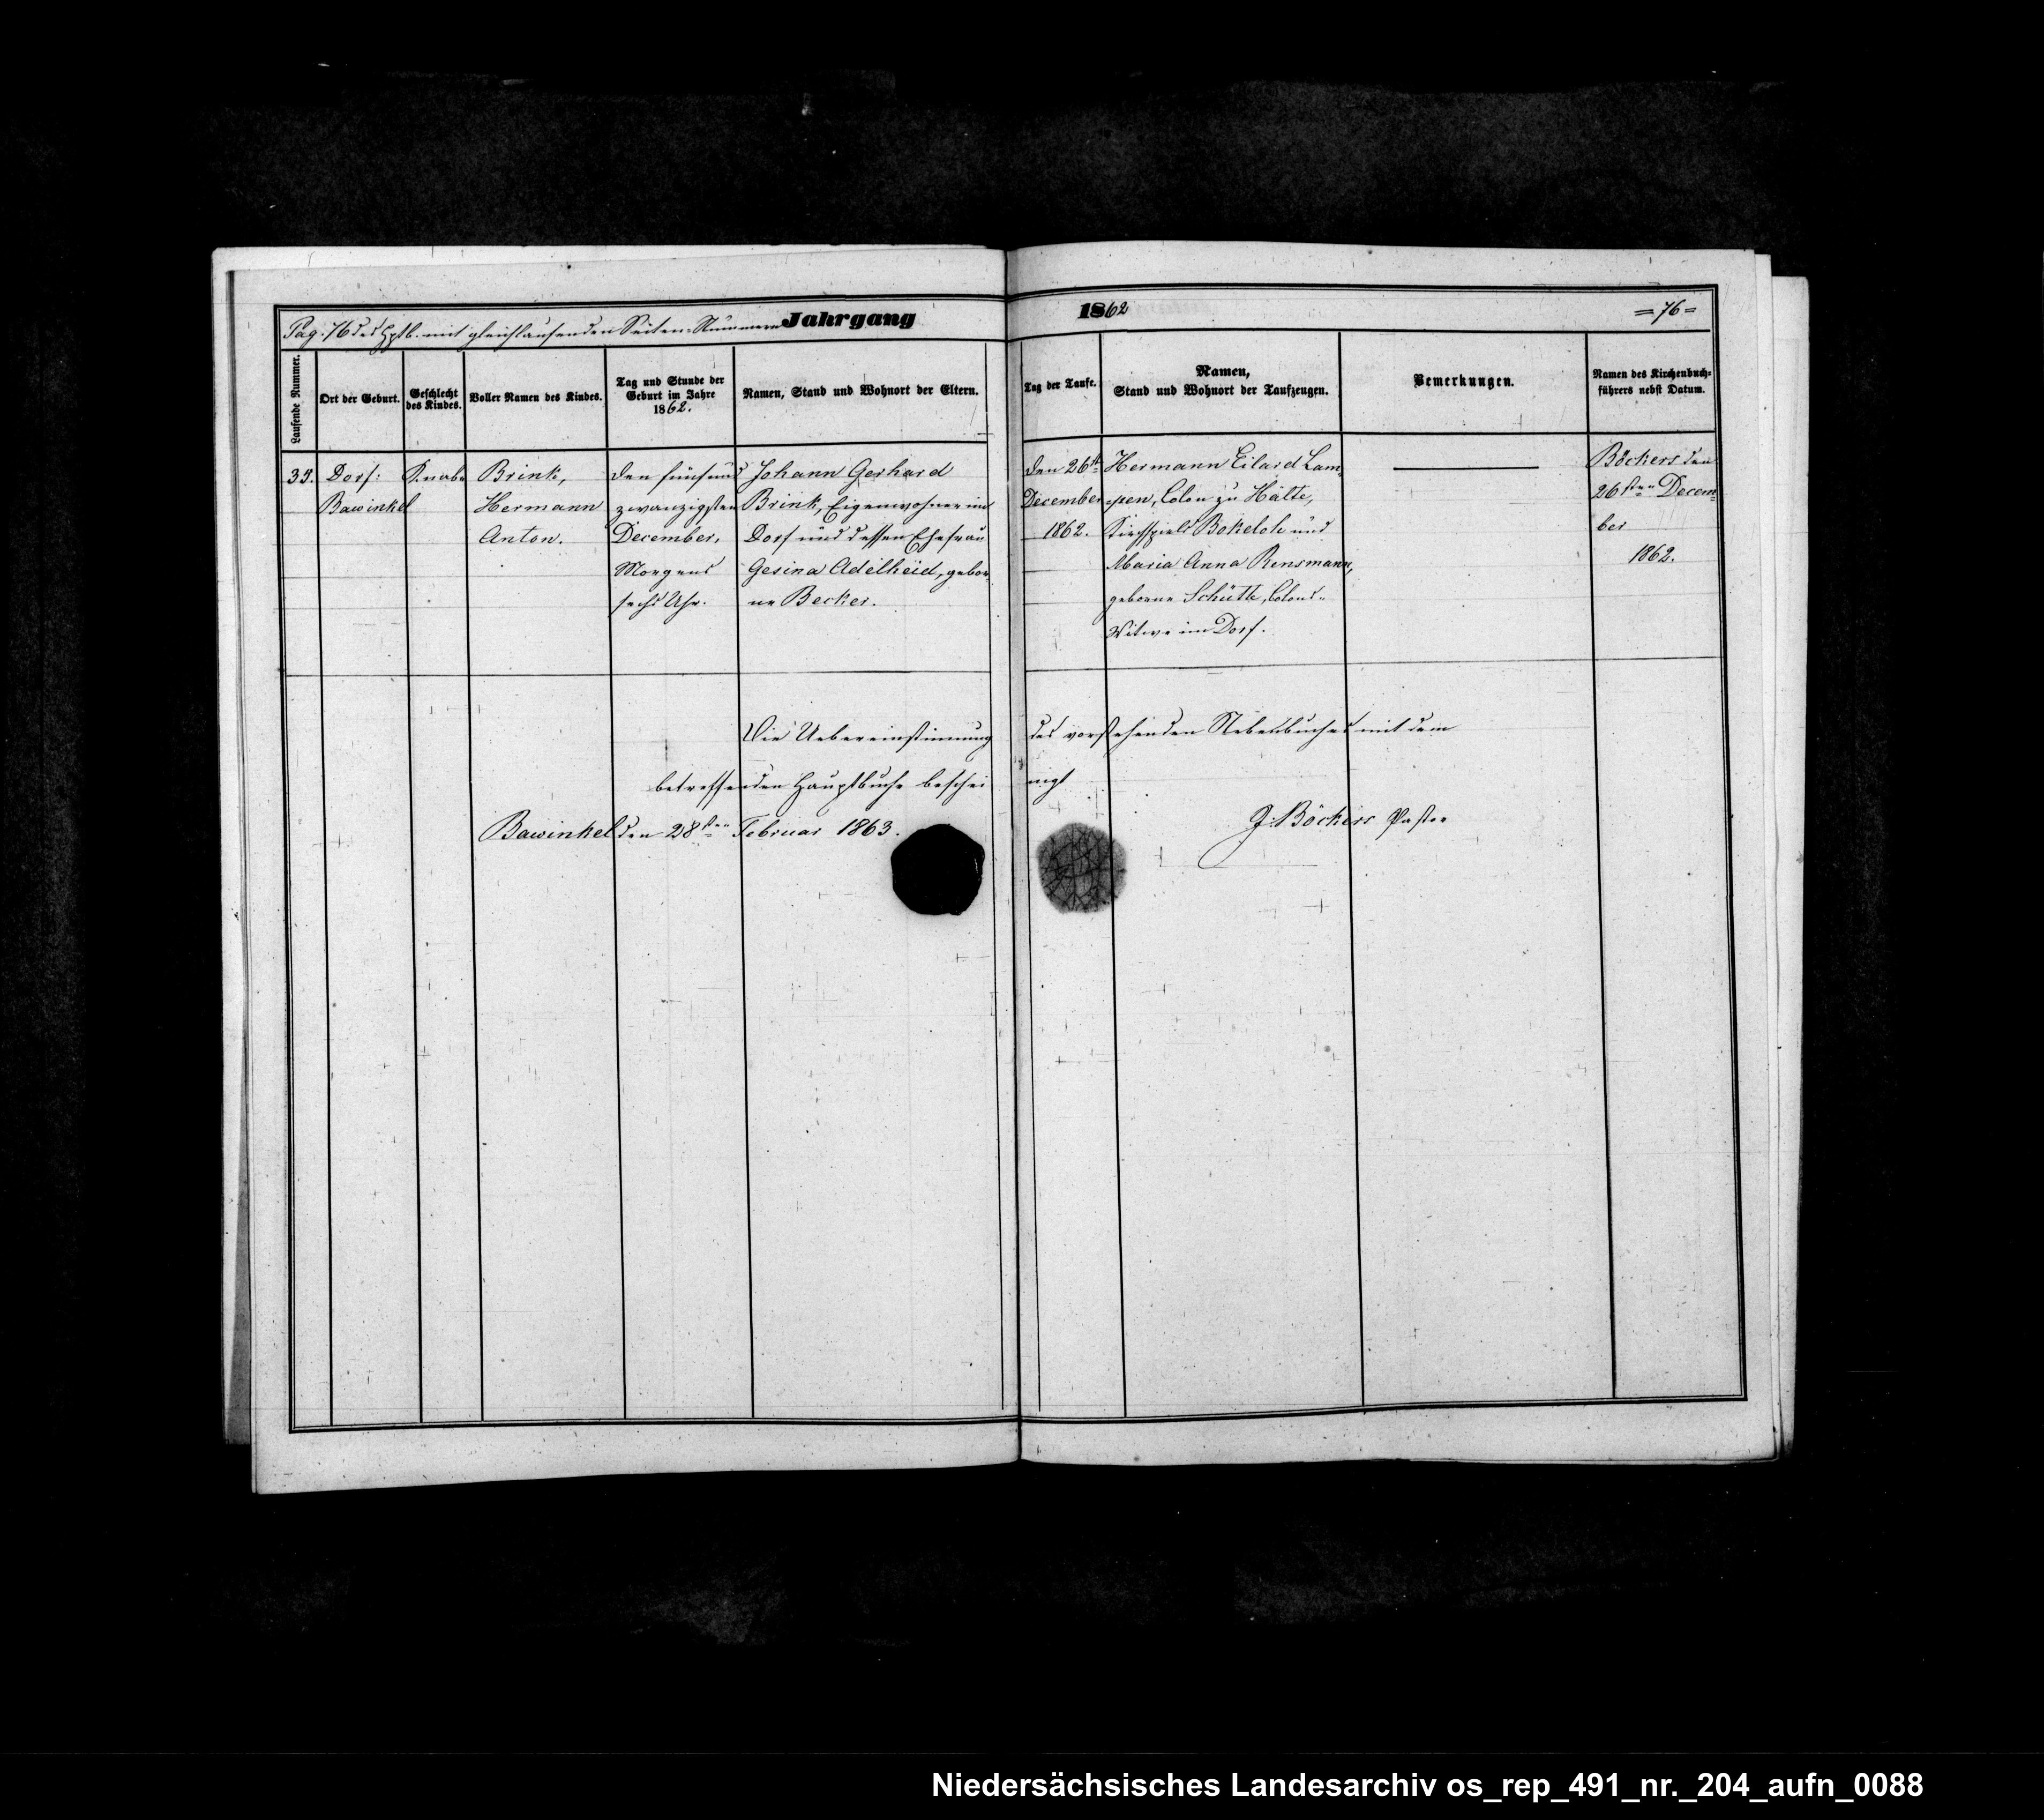 Pag. 76 des Hptb. mit gleichlaufenden Seiten-Nummern
Jahrgang 1862
=76=
Laufende Nummer.
Ort der Geburt.
Geschlecht
des Kindes.
Voller Namen des Kindes.
Tag und Stunde der
Geburt im Jahre
1862.
Namen, Stand und Wohnort der Eltern.
Tag der Taufe.
Namen,
Stand und Wohnort der Taufzeugen.
Bemerkungen.
Namen des Kirchenbuch-
führers nebst Datum.
Dorf:
Bawinkel
Knabe
Brink,
Hermann
Anton.
den fünfund
zwanzigsten
December,
Morgens
sechs Uhr.
Johann Gerhard
Brink, Eigenwohner im
Dorf und dessen Ehefrau
Gesina Adelheid, gebor
ne Becker.
den 26t
December
1862.
Hermann Eilard Lam-
pen, Colon zu Hälte,
Kirchspiels Bokeloh und
Maria Anna Rensmann,
geborne Schütte, Colons-
Witwe im Dorf.
Böckers den
26sten Decem
ber
1862.
Die Uebereinstimmung des vorstehenden Nebenbuches mit dem
betreffenden Hauptbuche bescheinigt
Bawinkel den 28sten Februar 1863.
J. Böckers Pastor
Niedersächsisches Landesarchiv os_rep_491_nr._204_aufn_0088